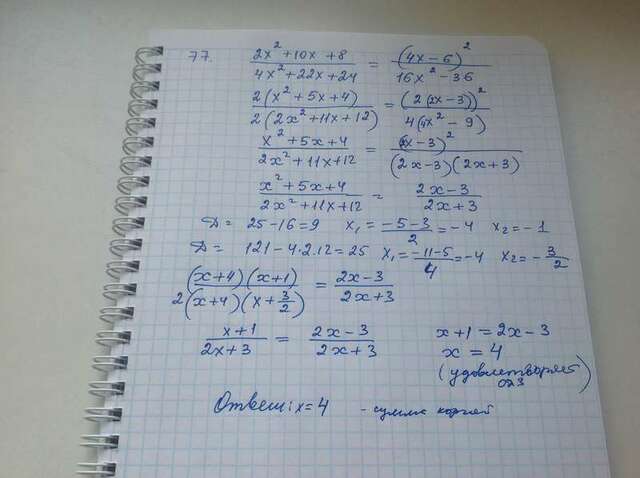 77. (2x² + 10x + 8)/(4x² + 22x + 24) = (4x - 6)²/(16x² - 36)
2(x² + 5x + 4)/2(2x² + 11x + 12) = (2(2x - 3))²/4(4x² - 9)
(x² + 5x + 4)/(2x² + 11x + 12) = (2x - 3)²/(2x - 3)(2x + 3)
(x² + 5x + 4)/(2x² + 11x + 12) = (2x - 3)/(2x + 3)
D = 25 - 16 = 9 x₁ = (-5 - 3)/2 = -4 x₂ = -1
D = 121 - 4·2·12 = 25 x₁ = (-11 - 5)/4 = -4 x₂ = -3/2
(x + 4)(x + 1)/2(x + 4)(x + 3/2) = (2x - 3)/(2x + 3)
(x + 1)/(2x + 3) = (2x - 3)/(2x + 3) x + 1 = 2x - 3
x = 4
(удовлетворяет
ОДЗ)
Ответ: x = 4 - сумма корней